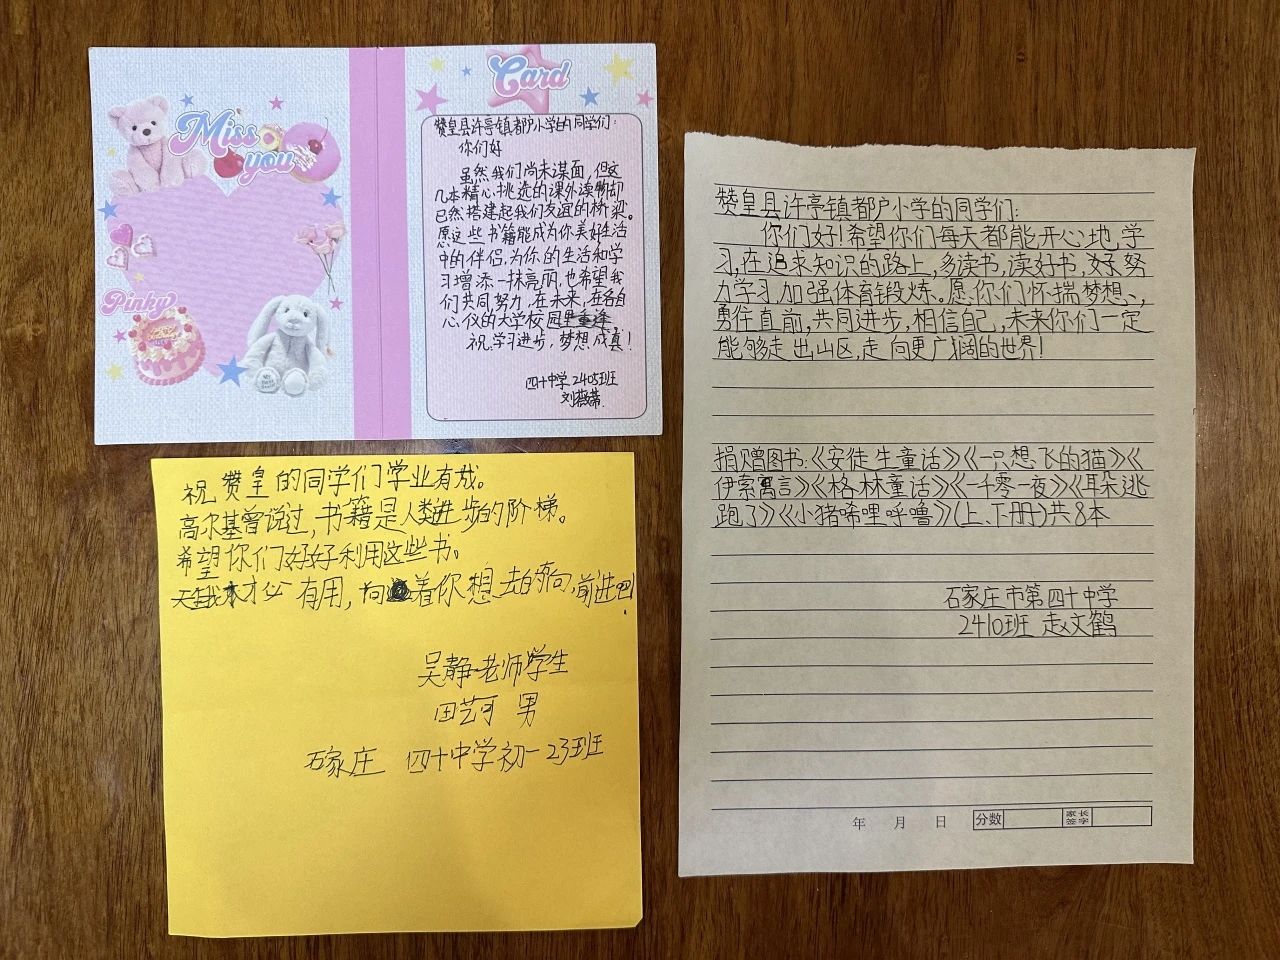 Miss
you
Pinky
Card
赞皇县许亭镇都户小学的同学们:
你们好
虽然我们尚未谋面,但这
几本精心挑选的课外读物却
已然搭建起我们友谊的桥梁。
愿这些书籍能成为你美好生活
中的伴侣,为你的生活和学
习增添一抹亮丽,也希望我
们共同努力,在未来,在各自
心仪的大学校园里重逢
祝学习进步,梦想成真!
四十中学2405班
刘薇
赞皇县许亭镇都户小学的同学们:
你们好!希望你们每天都能开心地学
习,在追求知识的路上,多读书,读好书,努
力学习,加强体育锻炼。愿你们怀揣梦想,
勇往直前,共同进步,相信自己,未来你们一定
能够走出山区,走向更广阔的世界!
捐赠图书:《安徒生童话》《一只想飞的猫》《
伊索寓言》《格林童话》《一千零一夜》《耳朵逃
跑了》《小猪唏哩呼噜》(上、下册)共8本
石家庄市第四十中学
2410班 赵文鹤
年 月 日 分数 家长签字
祝赞皇的同学们学业有成。
高尔基曾说过,书籍是人类进步的阶梯。
希望你们好好利用这些书。
天生我才必有用,向着你想去的方向,前进吧!
吴静老师学生
田艺可 男
石家庄 四十中学初一23班